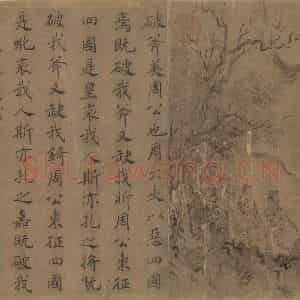 破斧美周公也周大夫以惡四國
焉既破我斧又缺我斨周公東征
四國是皇哀我人斯亦孔之將既
破我斧又缺我錡周公東征四國
是吪哀我人斯亦孔之嘉既破我
Shufawang.CN